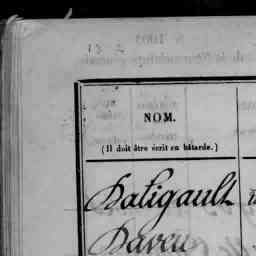 NOM.
(Il doit être écrit en bâtarde.)
Daligault
Daveu